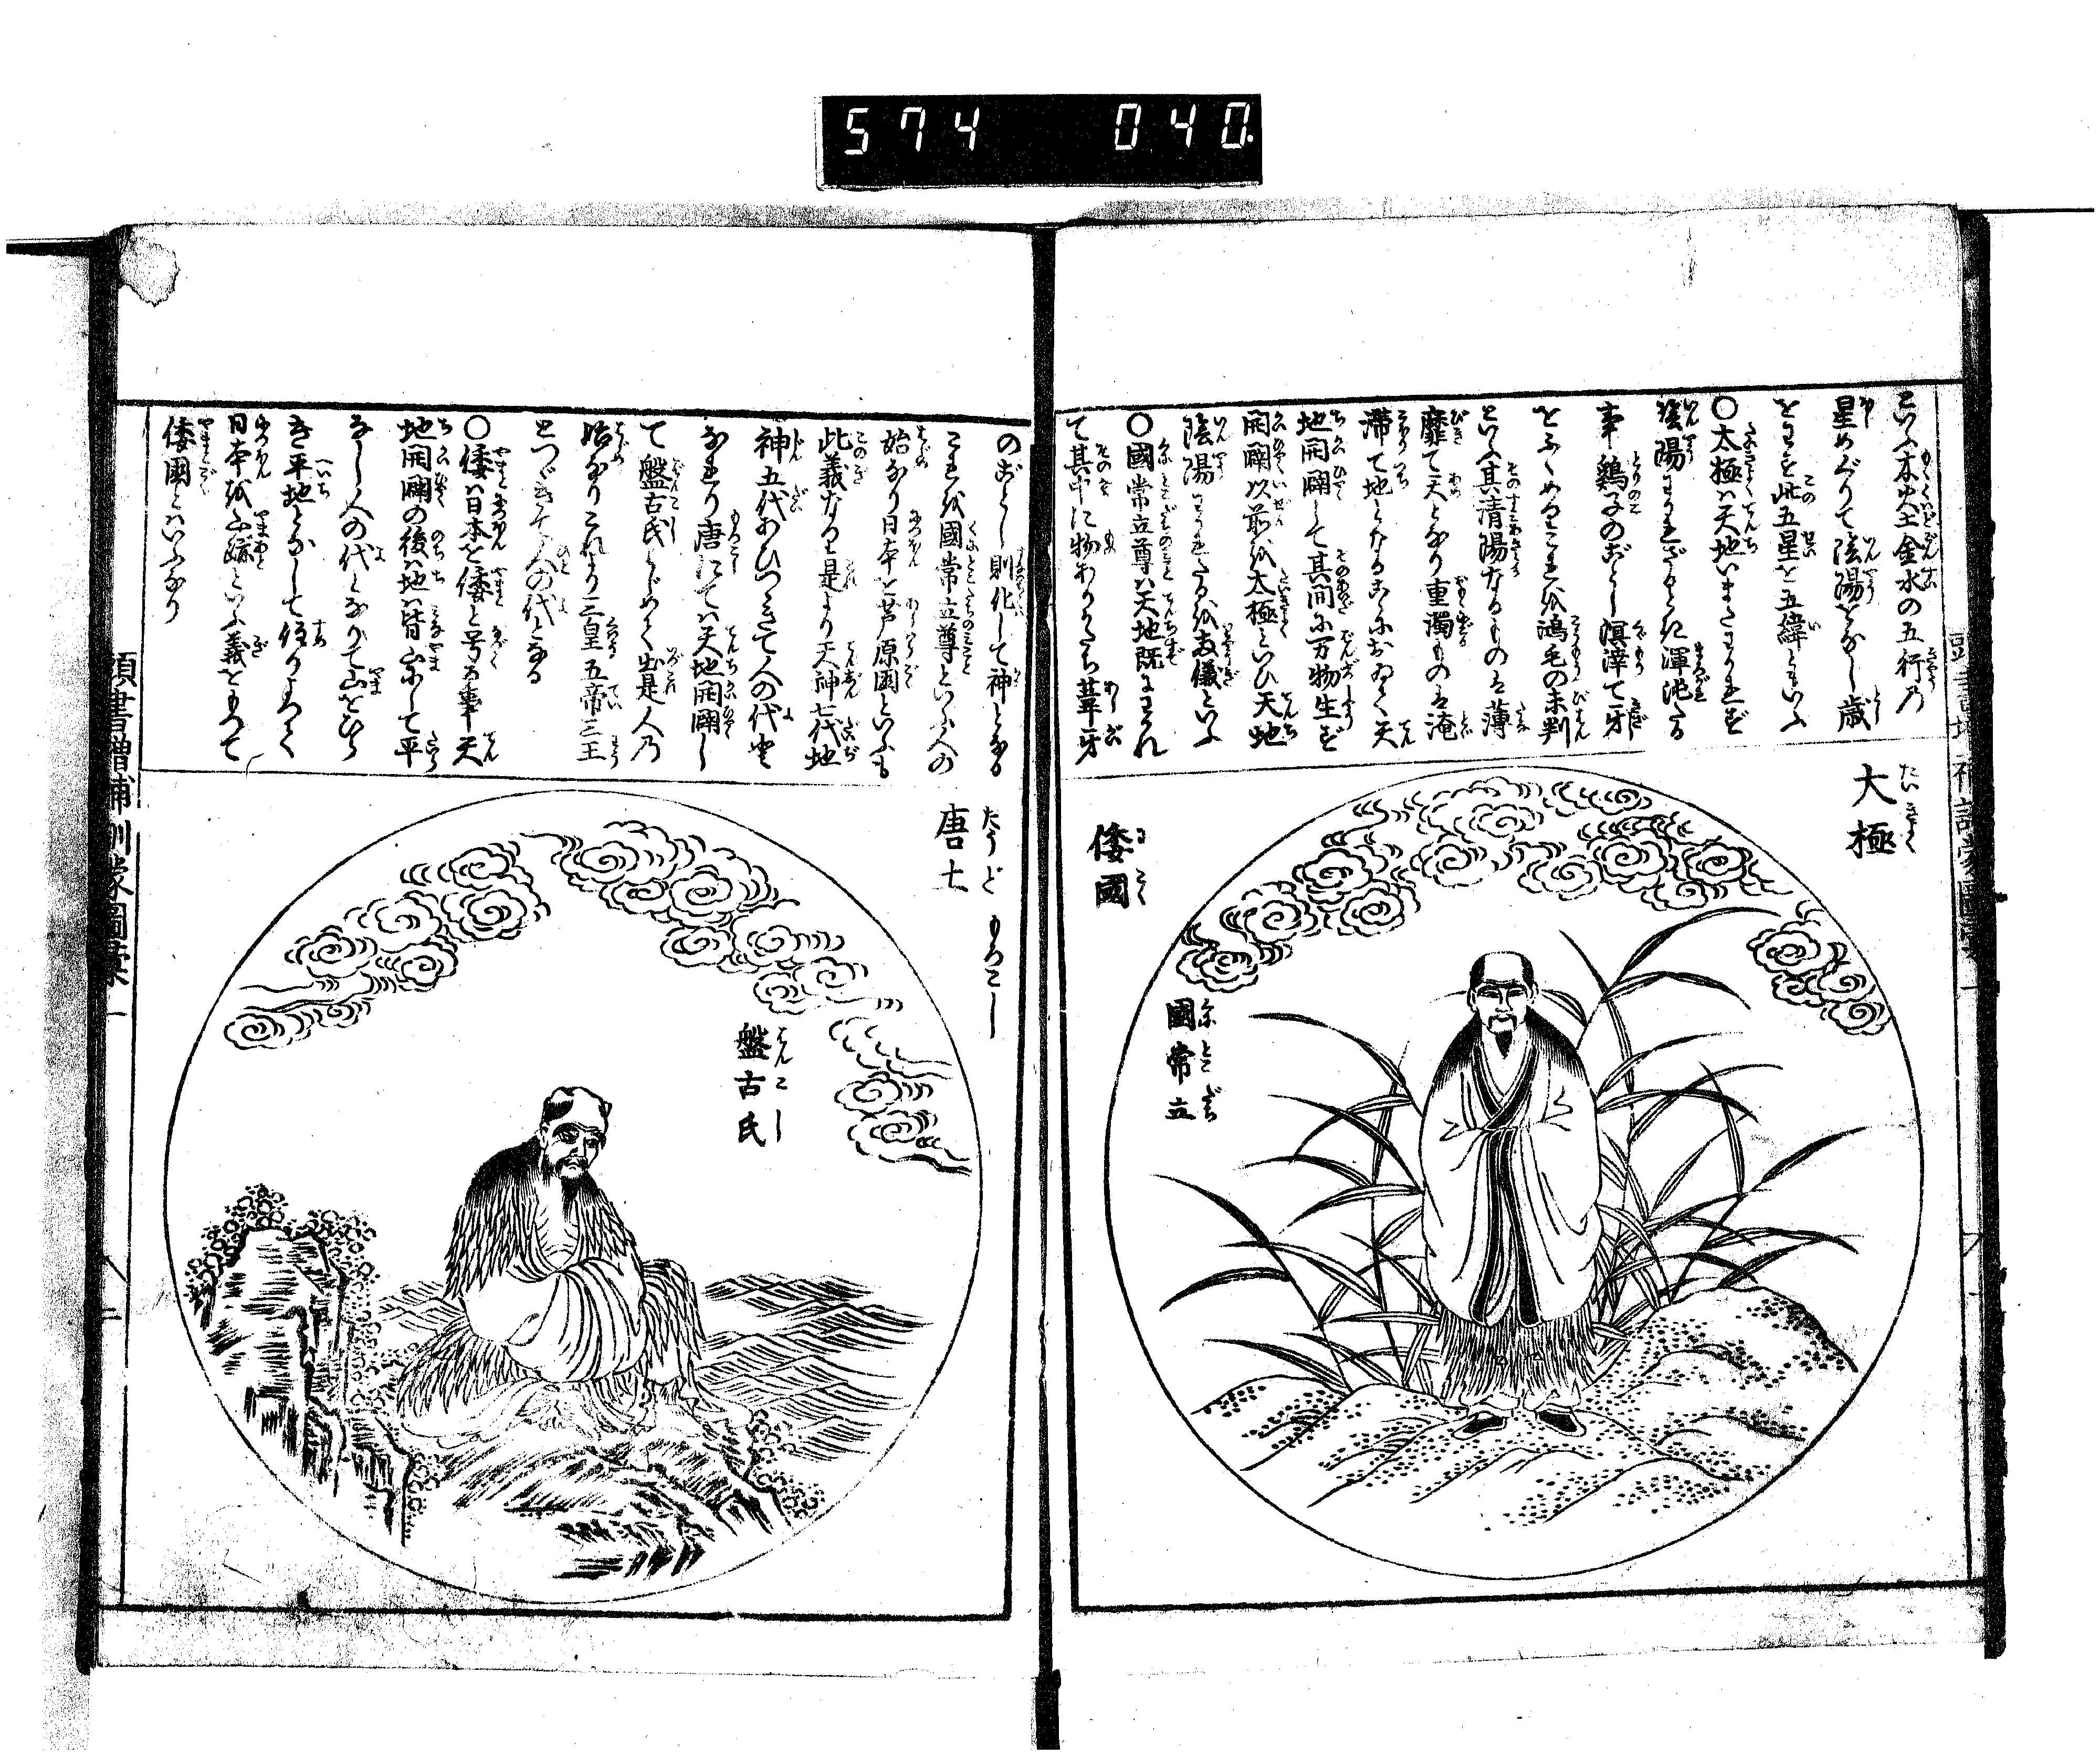 574 040.
といふ木火土金水の五行乃
星めぐりて陰陽をなし歳
をわかつ此五星を五緯ともいふ
〇太極は天地いまだわかれず
陰陽わかれざるとき渾沌たる
事鶏子のごとし溟涬て牙
をふくめりこれを鴻毛の未判
といふ其清陽なるものは薄
靡て天となり重濁ものは淹
滞て地となるこゝにおゐて天
地開闢して其間に万物生ず
開闢以前を太極といひ天地
陰陽わかれたるを両儀といふ
〇國常立尊は天地既にわかれ
て其中に物ありかたち葦牙
大極
たいきよく
倭國
わこく
國常立
くにとこだち
のごとし則化して神となる
これを國常立尊といふ人の
始なり日本を芦原國といふも
此義なり是より天神七代地
神五代おひつきて人の代と
なれり唐にては天地開闢し
て盤古氏はじめて出是人乃
始なりこれより三皇五帝三王
とつゞきて人の代となる
〇倭は日本を倭と号る事天
地開闢の後は地は皆山にして平
なし人の代となりて山をひら
き平地となして住りよつて
日本を山跡といふ義をもつて
倭國とはいふなり
唐土
たうど もろこし
盤古氏
はんこし
頭書増補訓蒙圖彙一